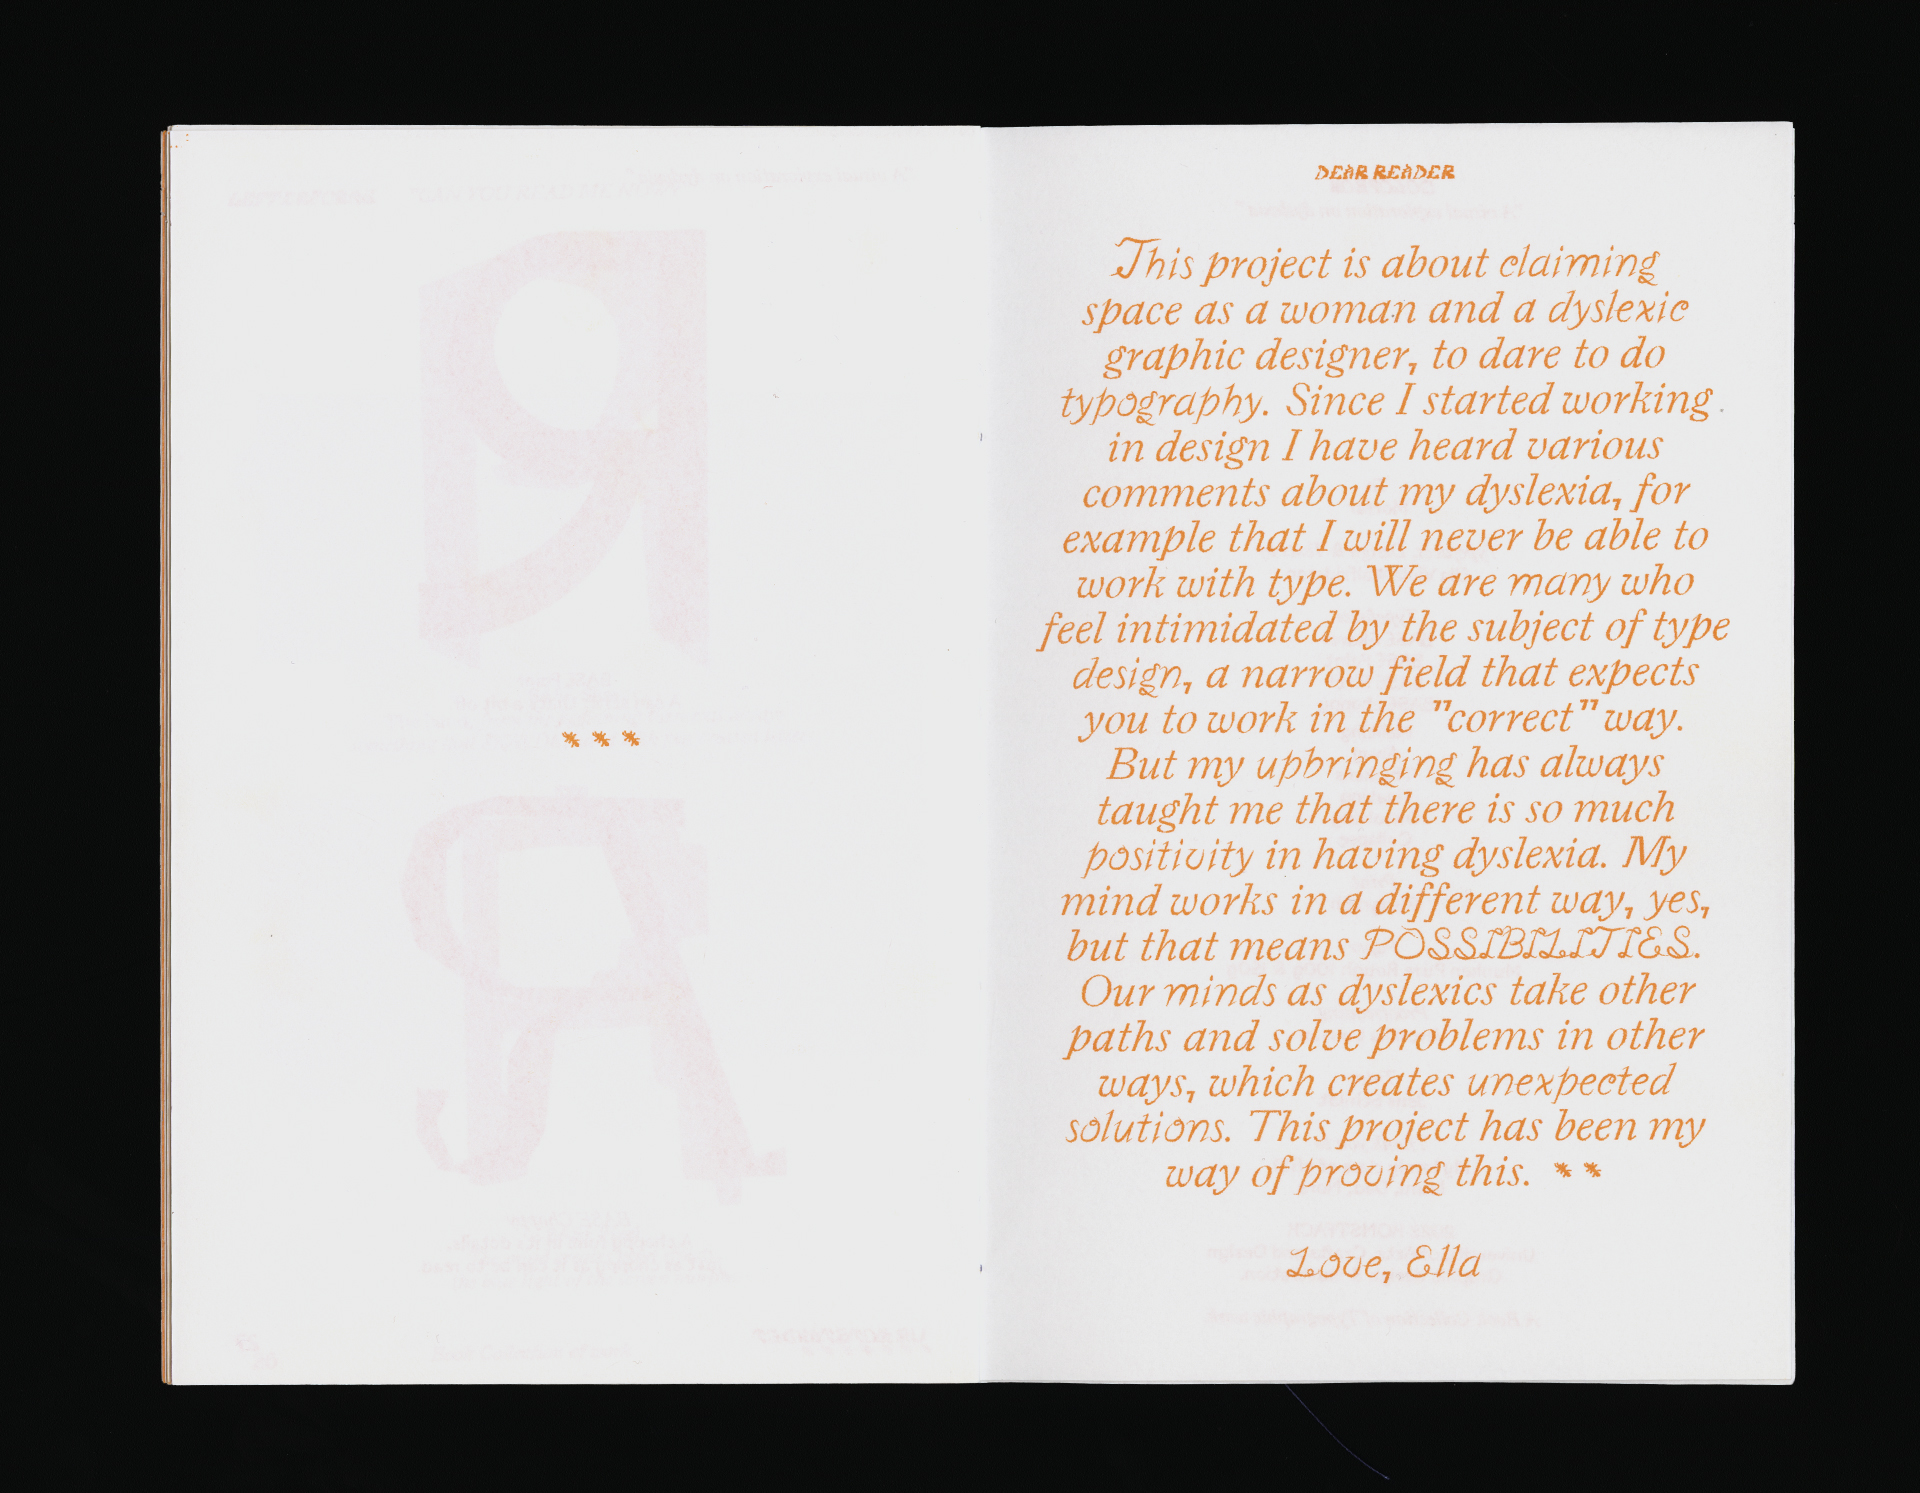 DEAR READER
This project is about claiming
space as a woman and a dyslexic
graphic designer, to dare to do
typography. Since I started working
in design I have heard various
comments about my dyslexia, for
example that I will never be able to
work with type. We are many who
feel intimidated by the subject of type
design, a narrow field that expects
you to work in the "correct" way.
But my upbringing has always
taught me that there is so much
positivity in having dyslexia. My
mind works in a different way, yes,
but that means POSSIBILITIES.
Our minds as dyslexics take other
paths and solve problems in other
ways, which creates unexpected
solutions. This project has been my
way of proving this. **
Love, Ella